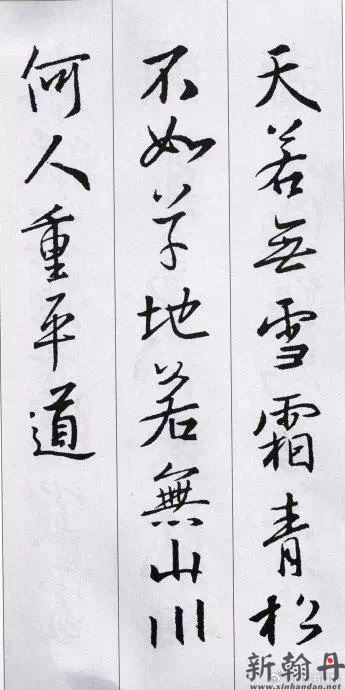 天若無雪霜青松
不如草地若無山川
何人重平道
新翰丹
www.xinhandan.net